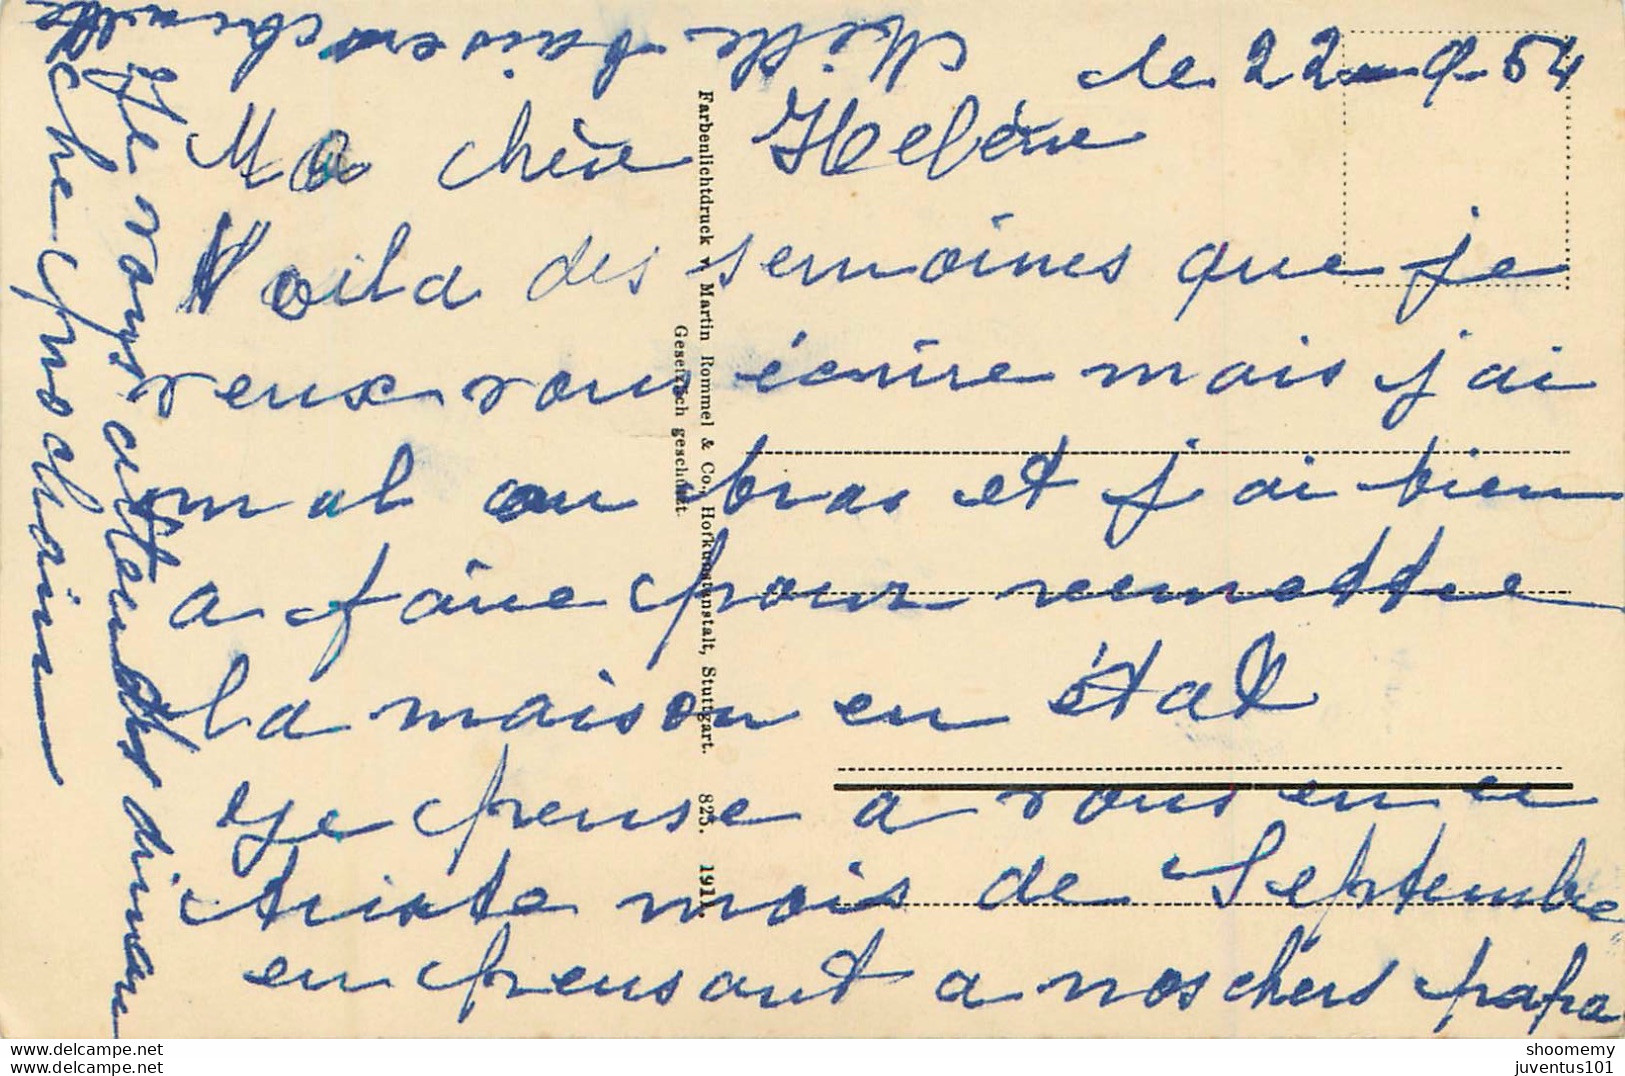 le 22-9-54
Ma chère Helène
Voila des semaines que je
veux vous écrire mais j'ai
mal au bras et j'ai bien
a faire pour remettre
la maison en état
Je pense a vous en ce
triste mois de Septembre
en pensant a nos chers papa
Je vous attends diman
che prochain
Mille baisers
Farbenlichtdruck v. Martin Rommel & Co., Hofkunstanstalt, Stuttgart. 825. 1911.
Gesetzlich geschützt.
shoomemy
juventus101